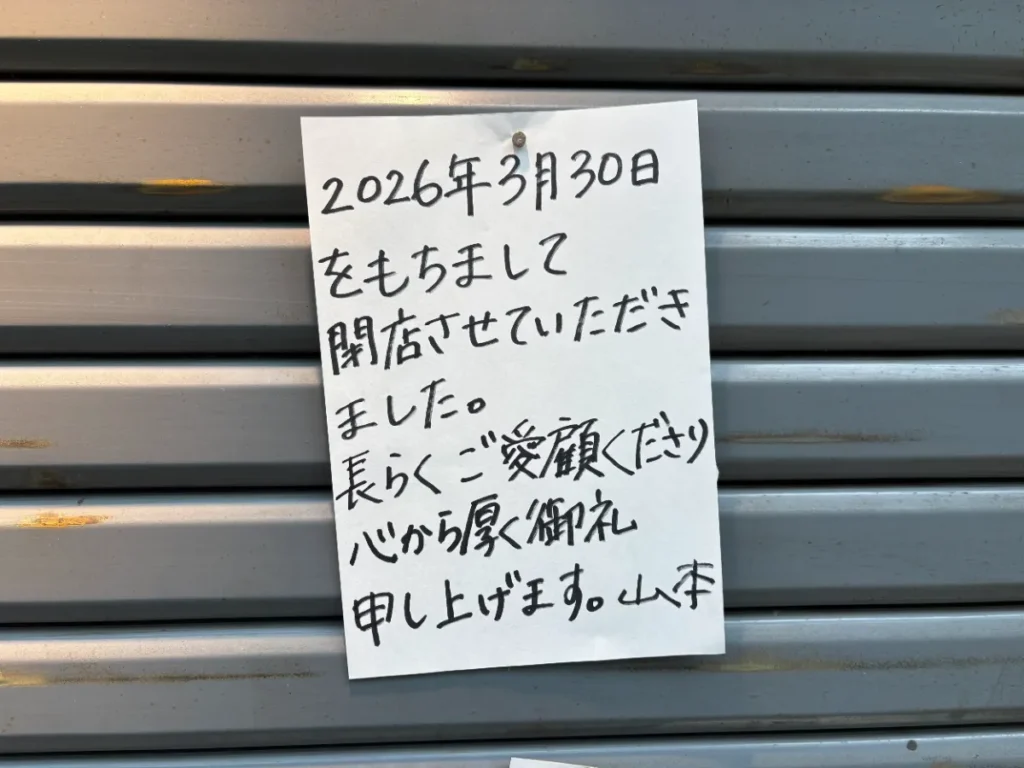 2026年3月30日
をもちまして
閉店させていただき
ました。
長らくご愛顧くださり
心から厚く御礼
申し上げます。山本